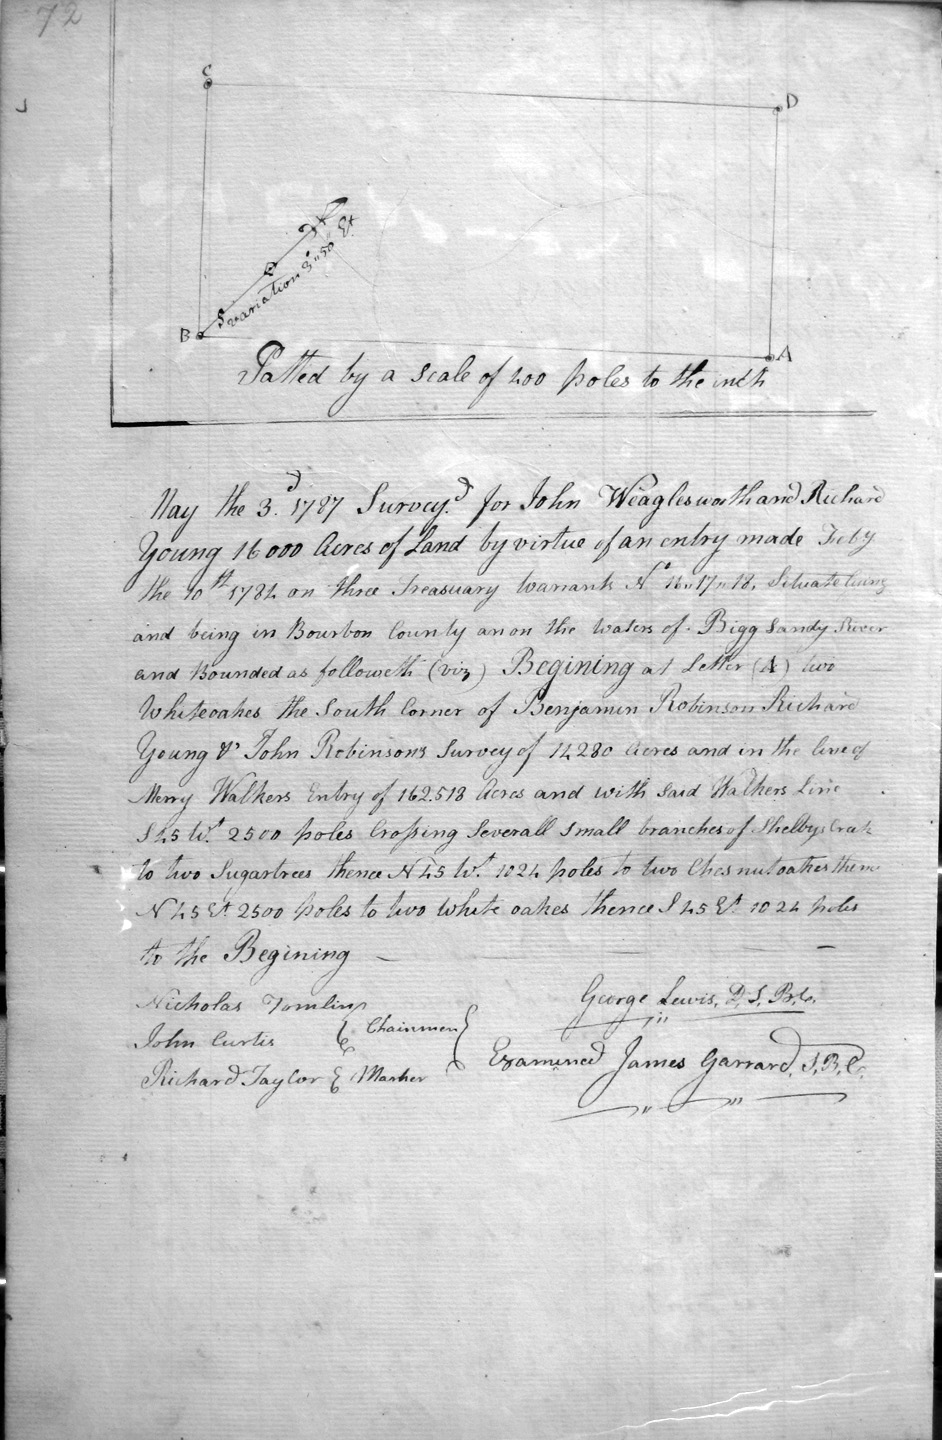 72
C
D
B
A
S variation 3°" 50" Et
Platted by a Scale of 400 poles to the inch
May the 3d. 1787 Surveyd. for John Weaglesworth and Richard
Young 16000 Acres of Land by virtue of an entry made Feby
the 10th 1784 on three Treasuary warrants No 16"17"18, Situate lieing
and being in Bourbon County an on the waters of Bigg Sandy River
and Bounded as followeth (viz) Begining at Letter (A) two
Whiteoakes the South Corner of Benjamin Robinson Richard
Young & John Robinsons Survey of 14280 Acres and in the line of
Merry Walkers Entry of 162.518 Acres and with said Walkers Line
S 45 Wt. 2500 poles Crossing Severall small branches of Shelbys Creek
to two Sugartrees thence N 45 Wt. 1024 poles to two Chesnutoakes thence
N 45 Et 2500 poles to two white oakes thence S 45 Et. 1024 poles
to the Begining
Nicholas Tomlin
John Curtis } Chainmen
Richard Taylor } Marker
George Lewis, D, S, B, C.
Examined James Garrard, S, B, C.